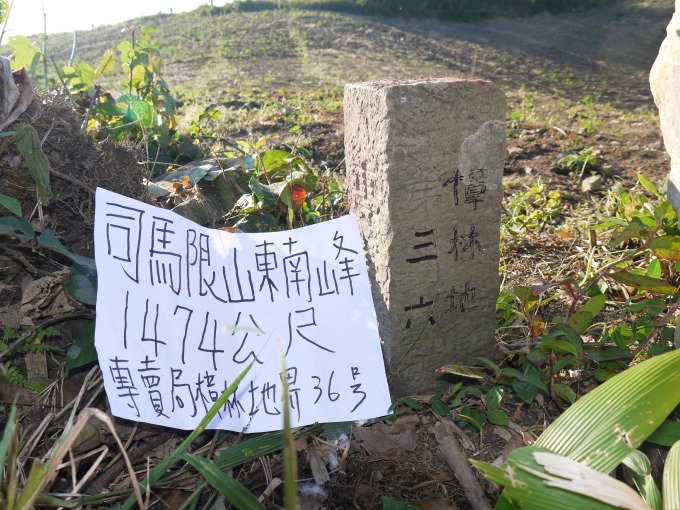 司馬限山東南峰
1474公尺
專賣局樟林地界36号
樟林地
三六